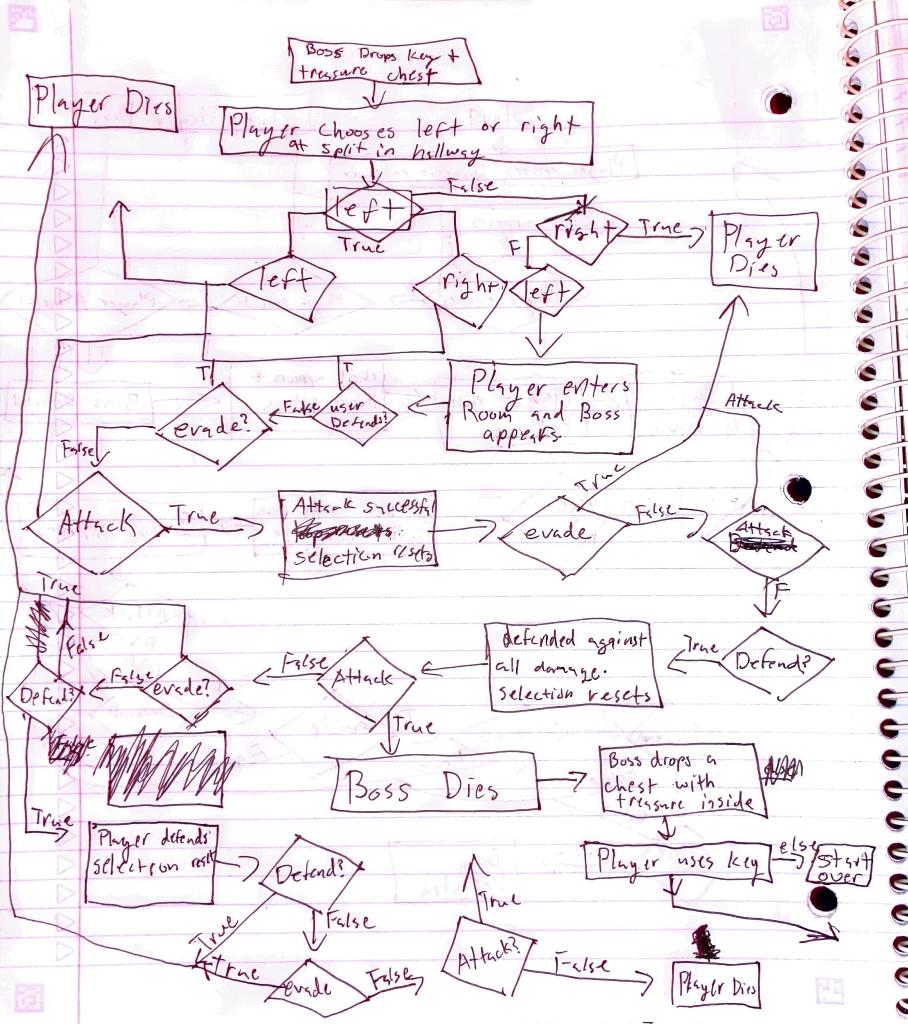 Boss Drops key +
treasure chest
Player Dies
Player chooses left or right
at split in hallway
left
False
True
right
True
Player
Dies
F
left
right
left
T
T
Player enters
Room and Boss
appears.
user
Defends?
False
evade?
False
Attack
Attack
True
Attack successful
selection resets
evade
True
False
Attack
F
Defend?
True
defended against
all damage.
selection resets
Attack
False
evade?
False
Defend?
True
False
True
Boss Dies
Boss drops a
chest with
treasure inside
Player uses key
else
Start
over
True
Player defends
selection reset
Defend?
True
False
evade
True
False
Attack?
True
False
Player Dies